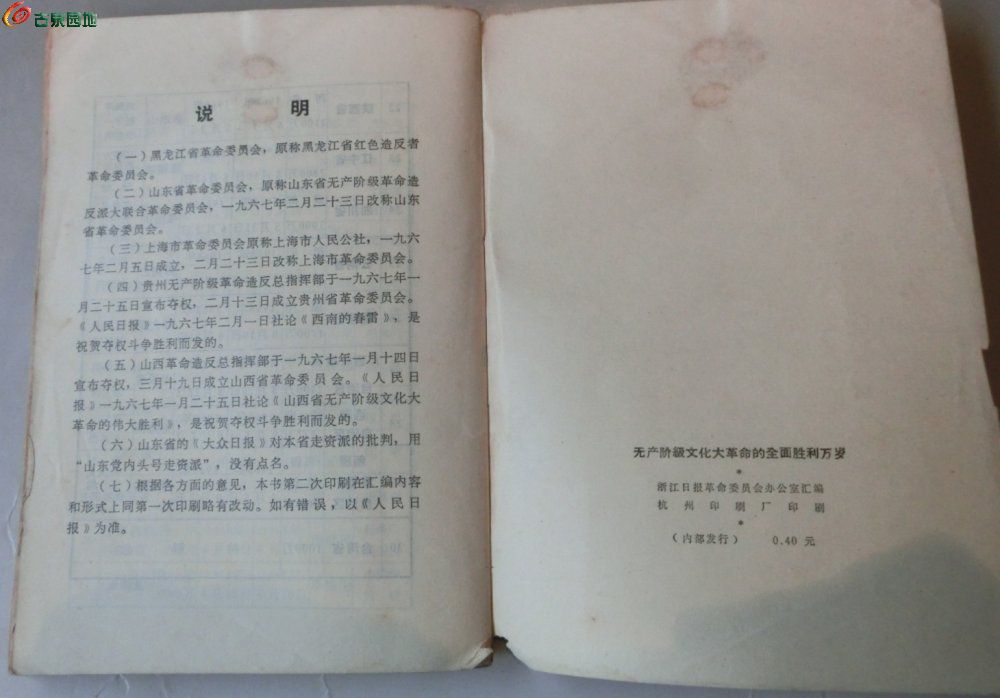 古泉园地
说 明
（一）黑龙江省革命委员会，原称黑龙江省红色造反者
革命委员会。
（二）山东省革命委员会，原称山东省无产阶级革命造
反派大联合革命委员会，一九六七年二月二十三日改称山东
省革命委员会。
（三）上海市革命委员会原称上海市人民公社，一九六
七年二月五日成立，二月二十三日改称上海市革命委员会。
（四）贵州无产阶级革命造反总指挥部于一九六七年一
月二十五日宣布夺权，二月十三日成立贵州省革命委员会。
《人民日报》一九六七年二月一日社论《西南的春雷》，是
祝贺夺权斗争胜利而发的。
（五）山西革命造反总指挥部于一九六七年一月十四日
宣布夺权，三月十九日成立山西省革命委员会。《人民日
报》一九六七年一月二十五日社论《山西省无产阶级文化大
革命的伟大胜利》，是祝贺夺权斗争胜利而发的。
（六）山东省的《大众日报》对本省走资派的批判，用
“山东党内头号走资派”，没有点名。
（七）根据各方面的意见，本书第二次印刷在汇编内容
和形式上同第一次印刷略有改动。如有错误，以《人民日
报》为准。
无产阶级文化大革命的全面胜利万岁
*
浙江日报革命委员会办公室汇编
杭州印刷厂印刷
*
（内部发行） 0.40 元